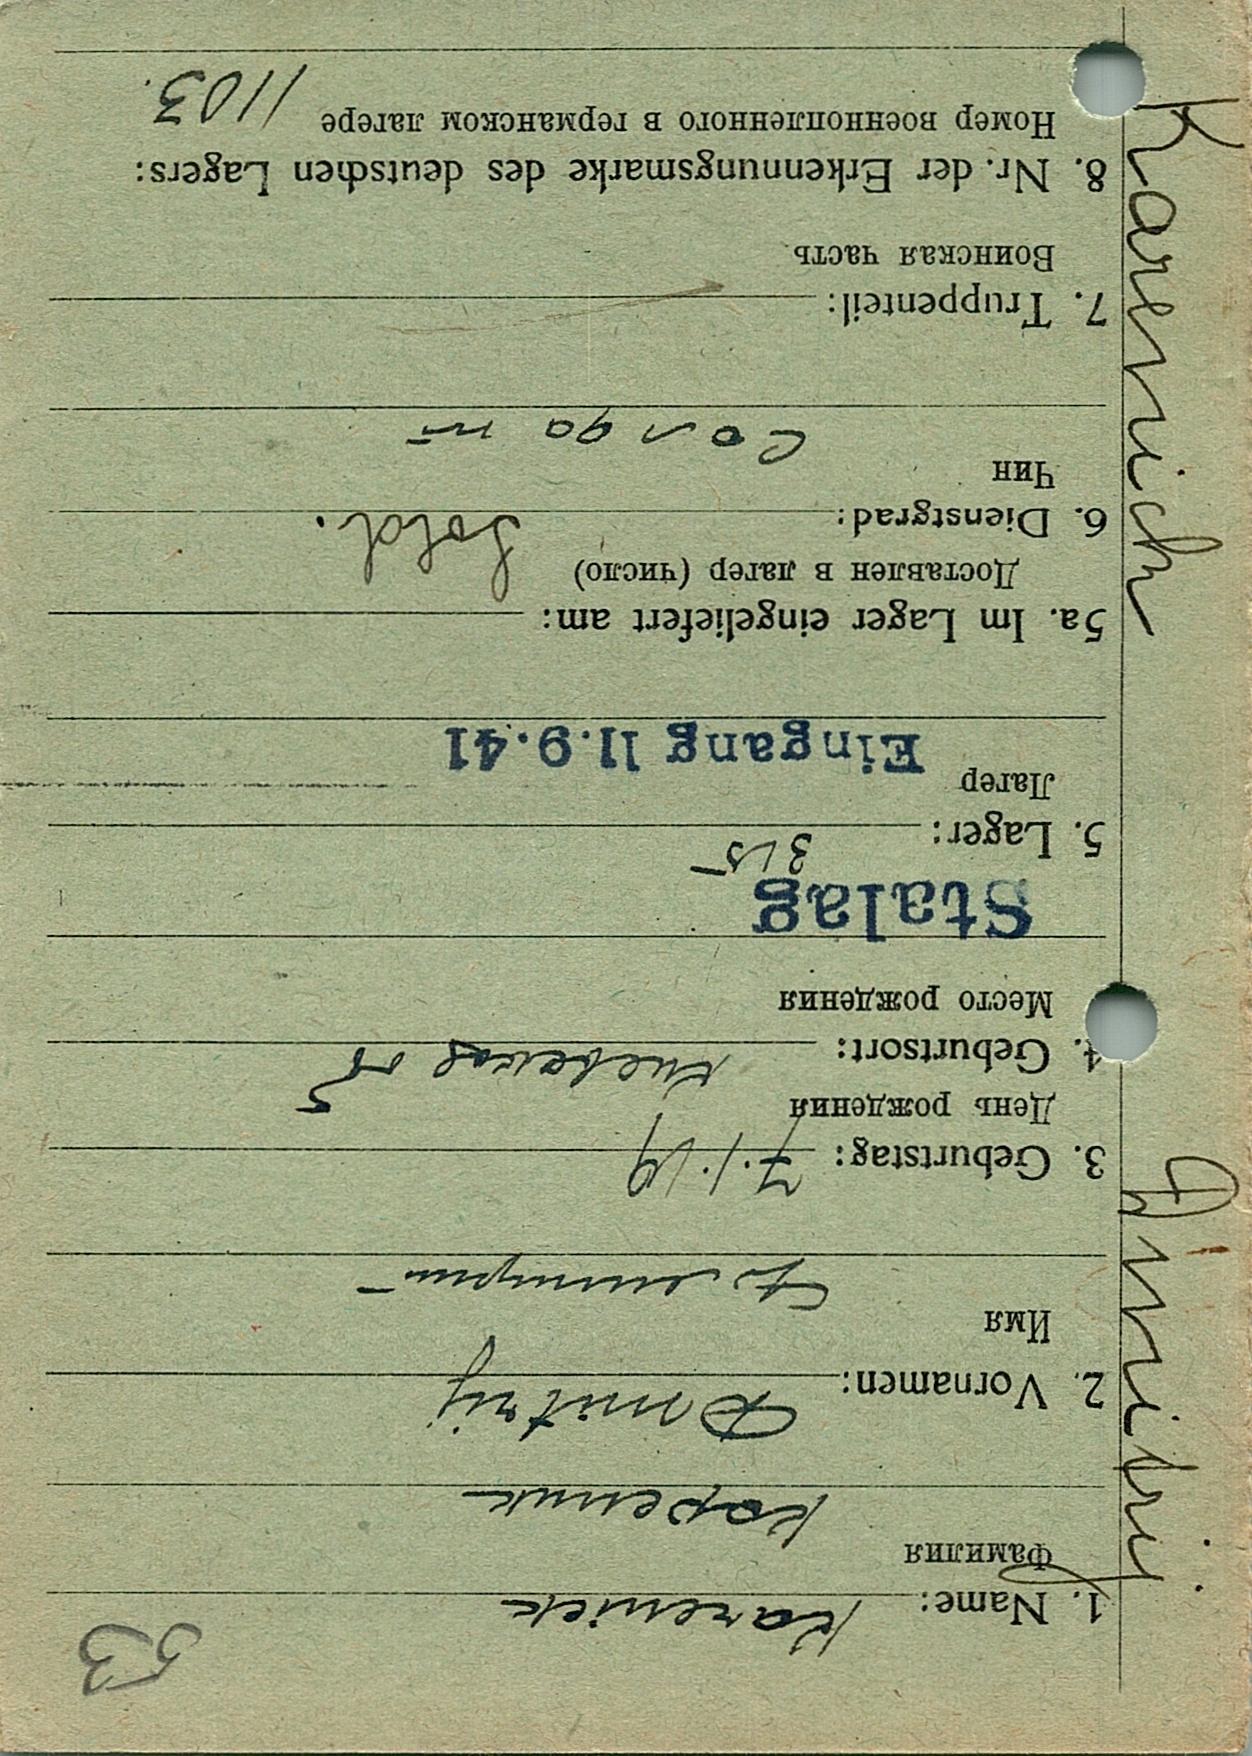 53
1. Name: Kareniek
Фамилия Кареник
2. Vornamen: Dmitrij
Имя Дмитрий
3. Geburtstag: 7.1.19
День рождения
4. Geburtsort: Киевская об
Место рождения
Stalag 315
5. Lager:
Лагер Eingang 11.9.41
5a. Im Lager eingeliefert am:
Доставлен в лагер (число)
6. Dienstgrad: Sold.
Чин Солдат
7. Truppenteil:
Воинская часть
8. Nr. der Erkennungsmarke des deutschen Lagers:
Номер военнопленного в германском лагере 1103.
Karenick Dmitrij